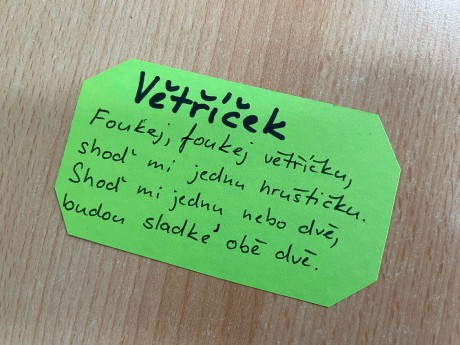 Větříček
Foukej, foukej větříčku,
shoď mi jednu hruštičku.
Shoď mi jednu nebo dvě,
budou sladké obě dvě.